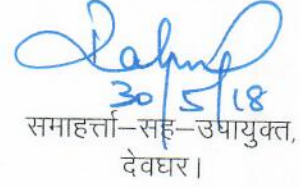 30/5/18
समाहर्त्ता–सह–उपायुक्त,
देवघर।